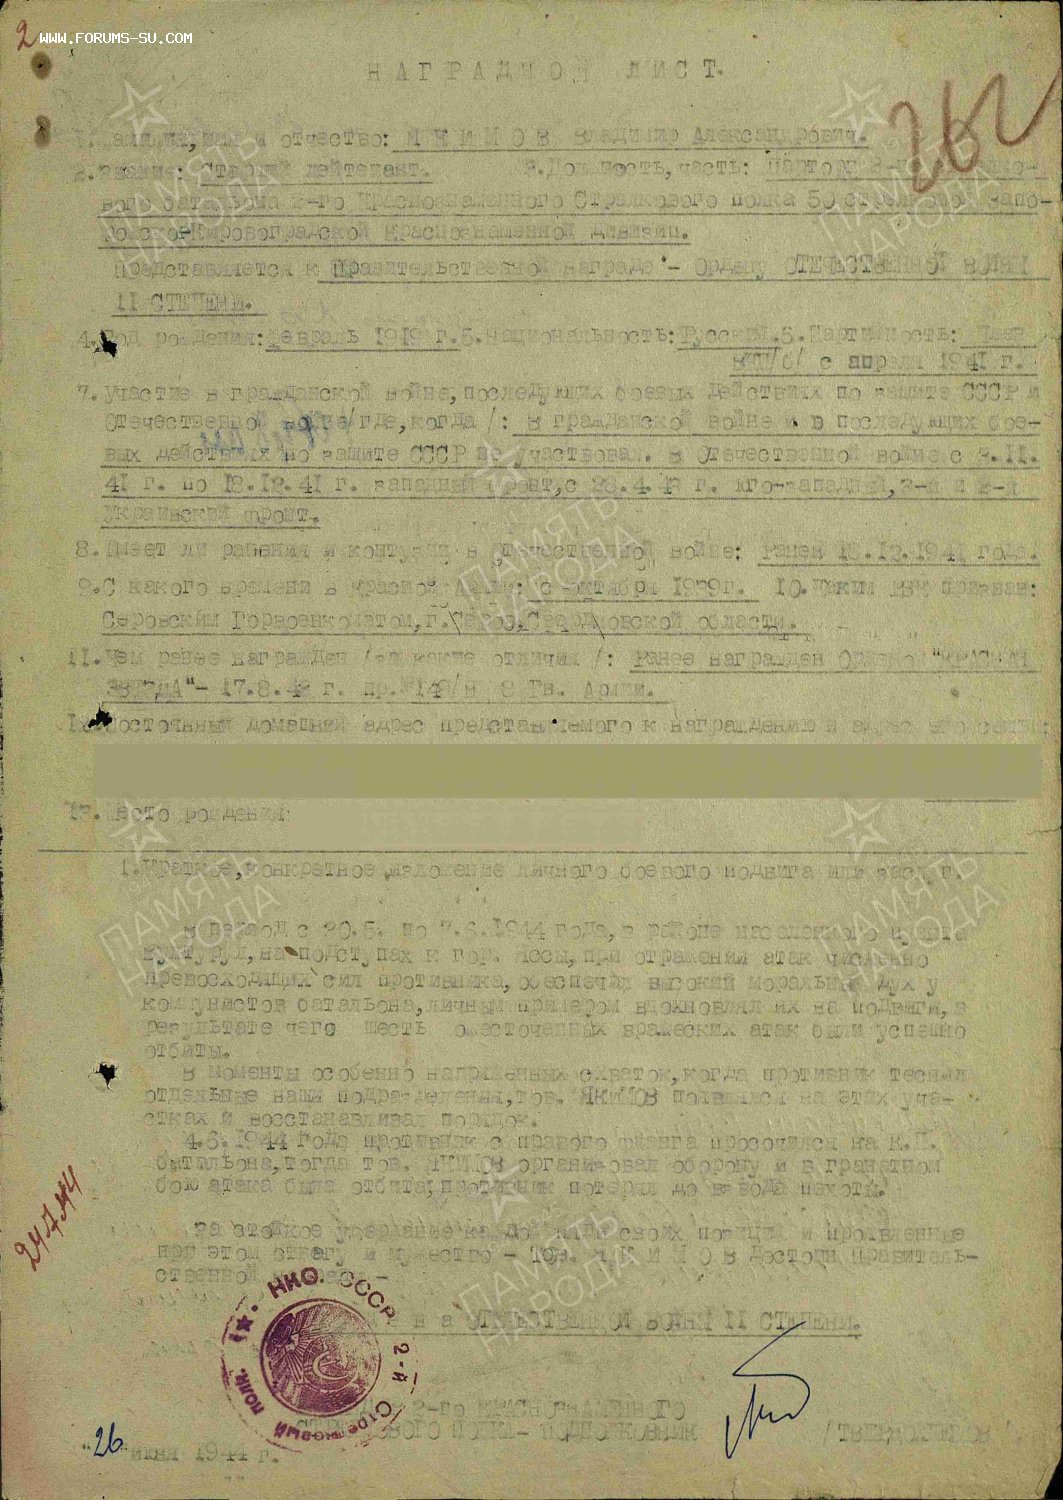 2
WWW.FORUMS-SU.COM
НАГРАДНОЙ ЛИСТ.
262
1. Фамилия, имя и отчество: ЯКИМОВ Владимир Александрович.
2. Звание: Старший лейтенант. 3. Должность, часть: Парторг
вого батальона 2-го Краснознаменного Стрелкового полка 50 стрелковой Запо-
рожско-Кировоградской Краснознаменной дивизии.
Представляется к Правительственной награде - Ордену ОТЕЧЕСТВЕННОЙ ВОЙНЫ
II СТЕПЕНИ.
4. Год рождения: февраль 1919 г. 5. Национальность: Русский. 6. Партийность: Член
ВКП/б/ с апреля 1941 г.
7. Участие в гражданской войне, последующих боевых действиях по защите СССР и
Отечественной войне/где, когда/: В гражданской войне и в последующих бое-
вых действиях по защите СССР не участвовал. В Отечественной войне с
41 г. по 18.12.41 г. западный фронт, с г. юго-западный, 3-й и 2-й
Украинский фронт.
8. Имеет ли ранения и контузии в Отечественной войне: Ранен 18.12.1941 года.
9. С какого времени в Красной Армии: с октября 1939 г. 10. Каким РВК призван:
Серовским Горвоенкоматом, г. Серов, Свердловской области.
11. Чем ранее награжден /за какие отличия/: Ранее награжден Орденом "КРАСНАЯ
ЗВЕЗДА" - 17.8.43 г. пр. №149/н 8 Гв. Армии.
12. Постоянный домашний адрес представляемого к награждению и адрес его семьи:
13. Место рождения:
1. Краткое, конкретное изложение личного боевого подвига или заслуг.
В период с 30.5. по 7.6.1944 года, в районе населенного пункта
на подступах к гор. Яссы, при отражении атак численно
превосходящих сил противника, обеспечил высокий моральный дух у
коммунистов батальона, личным примером вдохновлял их на подвиги, в
результате чего шесть ожесточенных вражеских атак были успешно
отбиты.
В моменты особенно напряженных схваток, когда противник теснил
отдельные наши подразделения, тов. ЯКИМОВ появлялся на этих уча-
стках и восстанавливал порядок.
4.6.1944 года противник с правого фланга просочился на К.П.
батальона, тогда тов. ЯКИМОВ организовал оборону и в гранатном
бою атака была отбита; противник потерял до взвода пехоты.
За стойкое удержание своих позиций и проявленные
при этом отвагу и мужество - тов. ЯКИМОВ Достоин Правитель-
ственной награды -
ОТЕЧЕСТВЕННОЙ ВОЙНЫ II СТЕПЕНИ.
24.7.44
НКО. СССР 2-й Стрелковый полк.
2-го КРАСНОЗНАМЕННОГО
СТРЕЛКОВОГО ПОЛКА - ПОДПОЛКОВНИК
"26" июня 1944 г.
ПАМЯТЬ НАРОДА